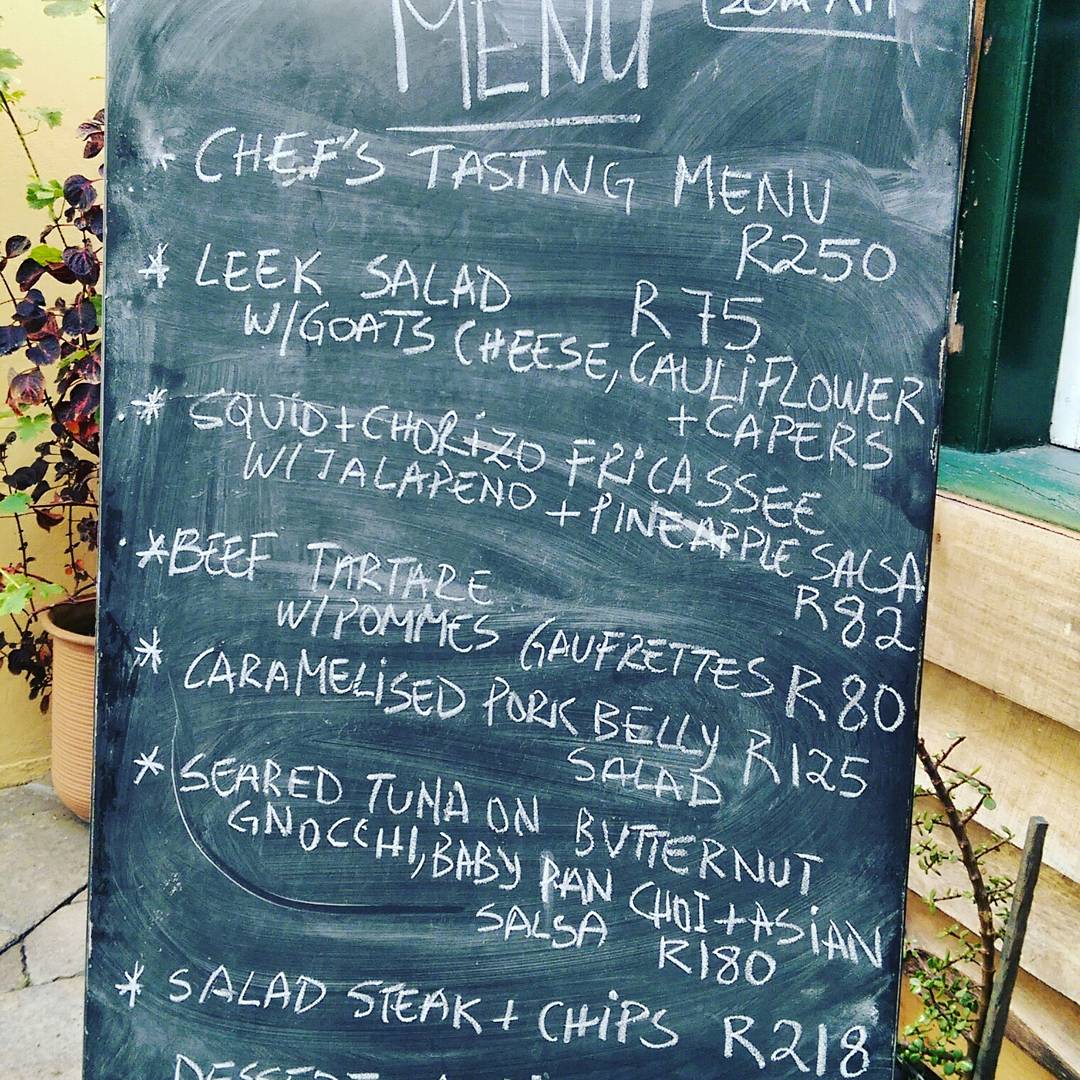 MENU
* CHEF'S TASTING MENU
R250
* LEEK SALAD R75
W/GOATS CHEESE, CAULiFLOWER
+ CAPERS
* SQUiD + CHORiZO FRiCASSEE
W/ JALAPENO + PINEAPPLE SALSA
R82
* BEEF TARTARE
W/POMMES GAUFRETTES R80
* CARAMELiSED PORK BELLY
SALAD R125
* SEARED TUNA ON BUTTERNUT
GNOCCHI, BABY PAN CHOI + ASiAN
SALSA R180
* SALAD STEAK + CHiPS R218